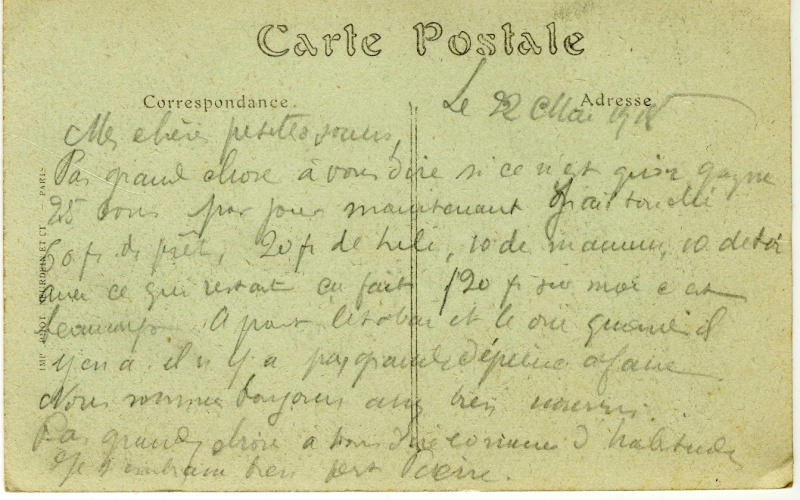 Carte Postale
Correspondance.
Adresse
Le 22 Mai 1918
Mes chères petites soeurs,
Pas grand chose à vous dire si ce n'est qu'on gagne
25 sous par jour maintenant J'ai touché
60 fr de prêt, 20 fr de 10 de maman, 10 de toi
avec ce qui restait ça fait 120 fr sur moi c'est
beaucoup A part le tabac et le vin quand il
y en a il n'y a pas grande dépense a faire
Nous sommes toujours assez bien nourris.
Pas grand chose à vous dire comme d'habitude
Je t'embrasse bien fort Pierre.
IMP. PHOT. ET CIE — PARIS